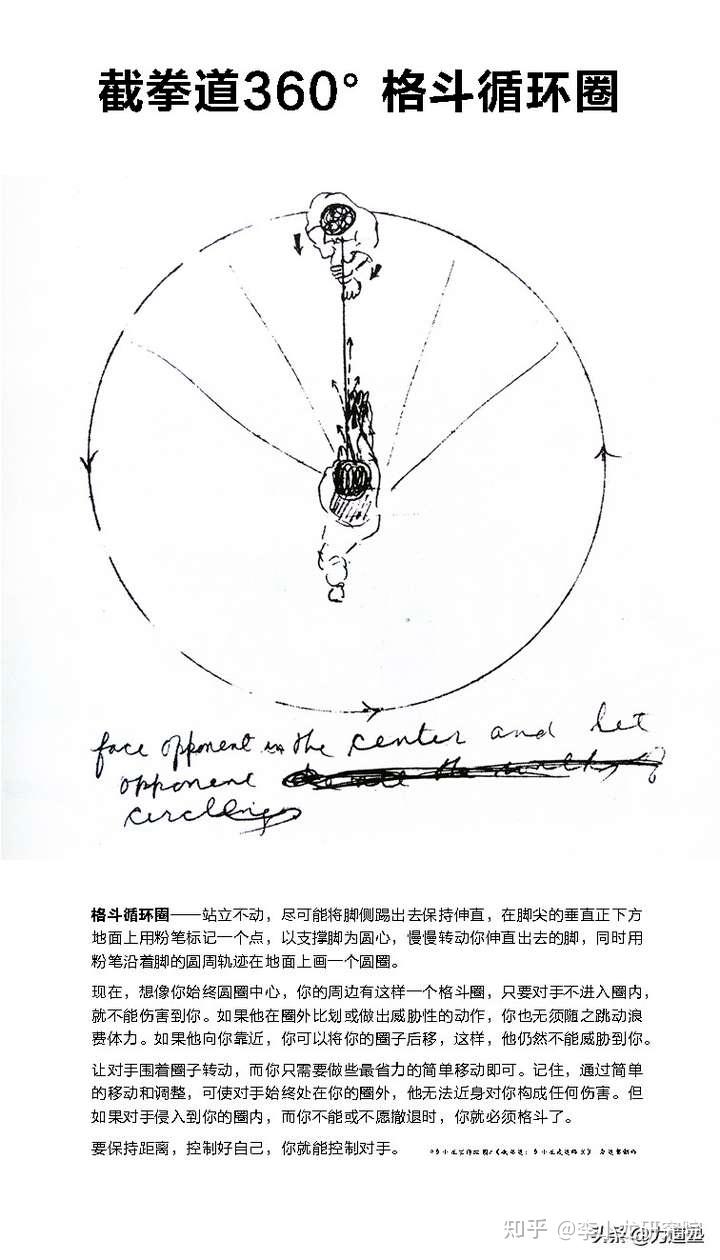 截拳道360° 格斗循环圈
face opponent in the center and let
opponent
circling
格斗循环圈——站立不动，尽可能将脚侧踢出去保持伸直，在脚尖的垂直正下方
地面上用粉笔标记一个点，以支撑脚为圆心，慢慢转动你伸直出去的脚，同时用
粉笔沿着脚的圆周轨迹在地面上画一个圆圈。
现在，想像你始终圆圈中心，你的周边有这样一个格斗圈，只要对手不进入圈内，
就不能伤害到你。如果他在圈外比划或做出威胁性的动作，你也无须随之跳动浪
费体力。如果他向你靠近，你可以将你的圈子后移，这样，他仍然不能威胁到你。
让对手围着圈子转动，而你只需要做些最省力的简单移动即可。记住，通过简单
的移动和调整，可使对手始终处在你的圈外，他无法近身对你构成任何伤害。但
如果对手侵入到你的圈内，而你不能或不愿撤退时，你就必须格斗了。
要保持距离，控制好自己，你就能控制对手。
知乎 @李小龙研究院
头条 @力道塾